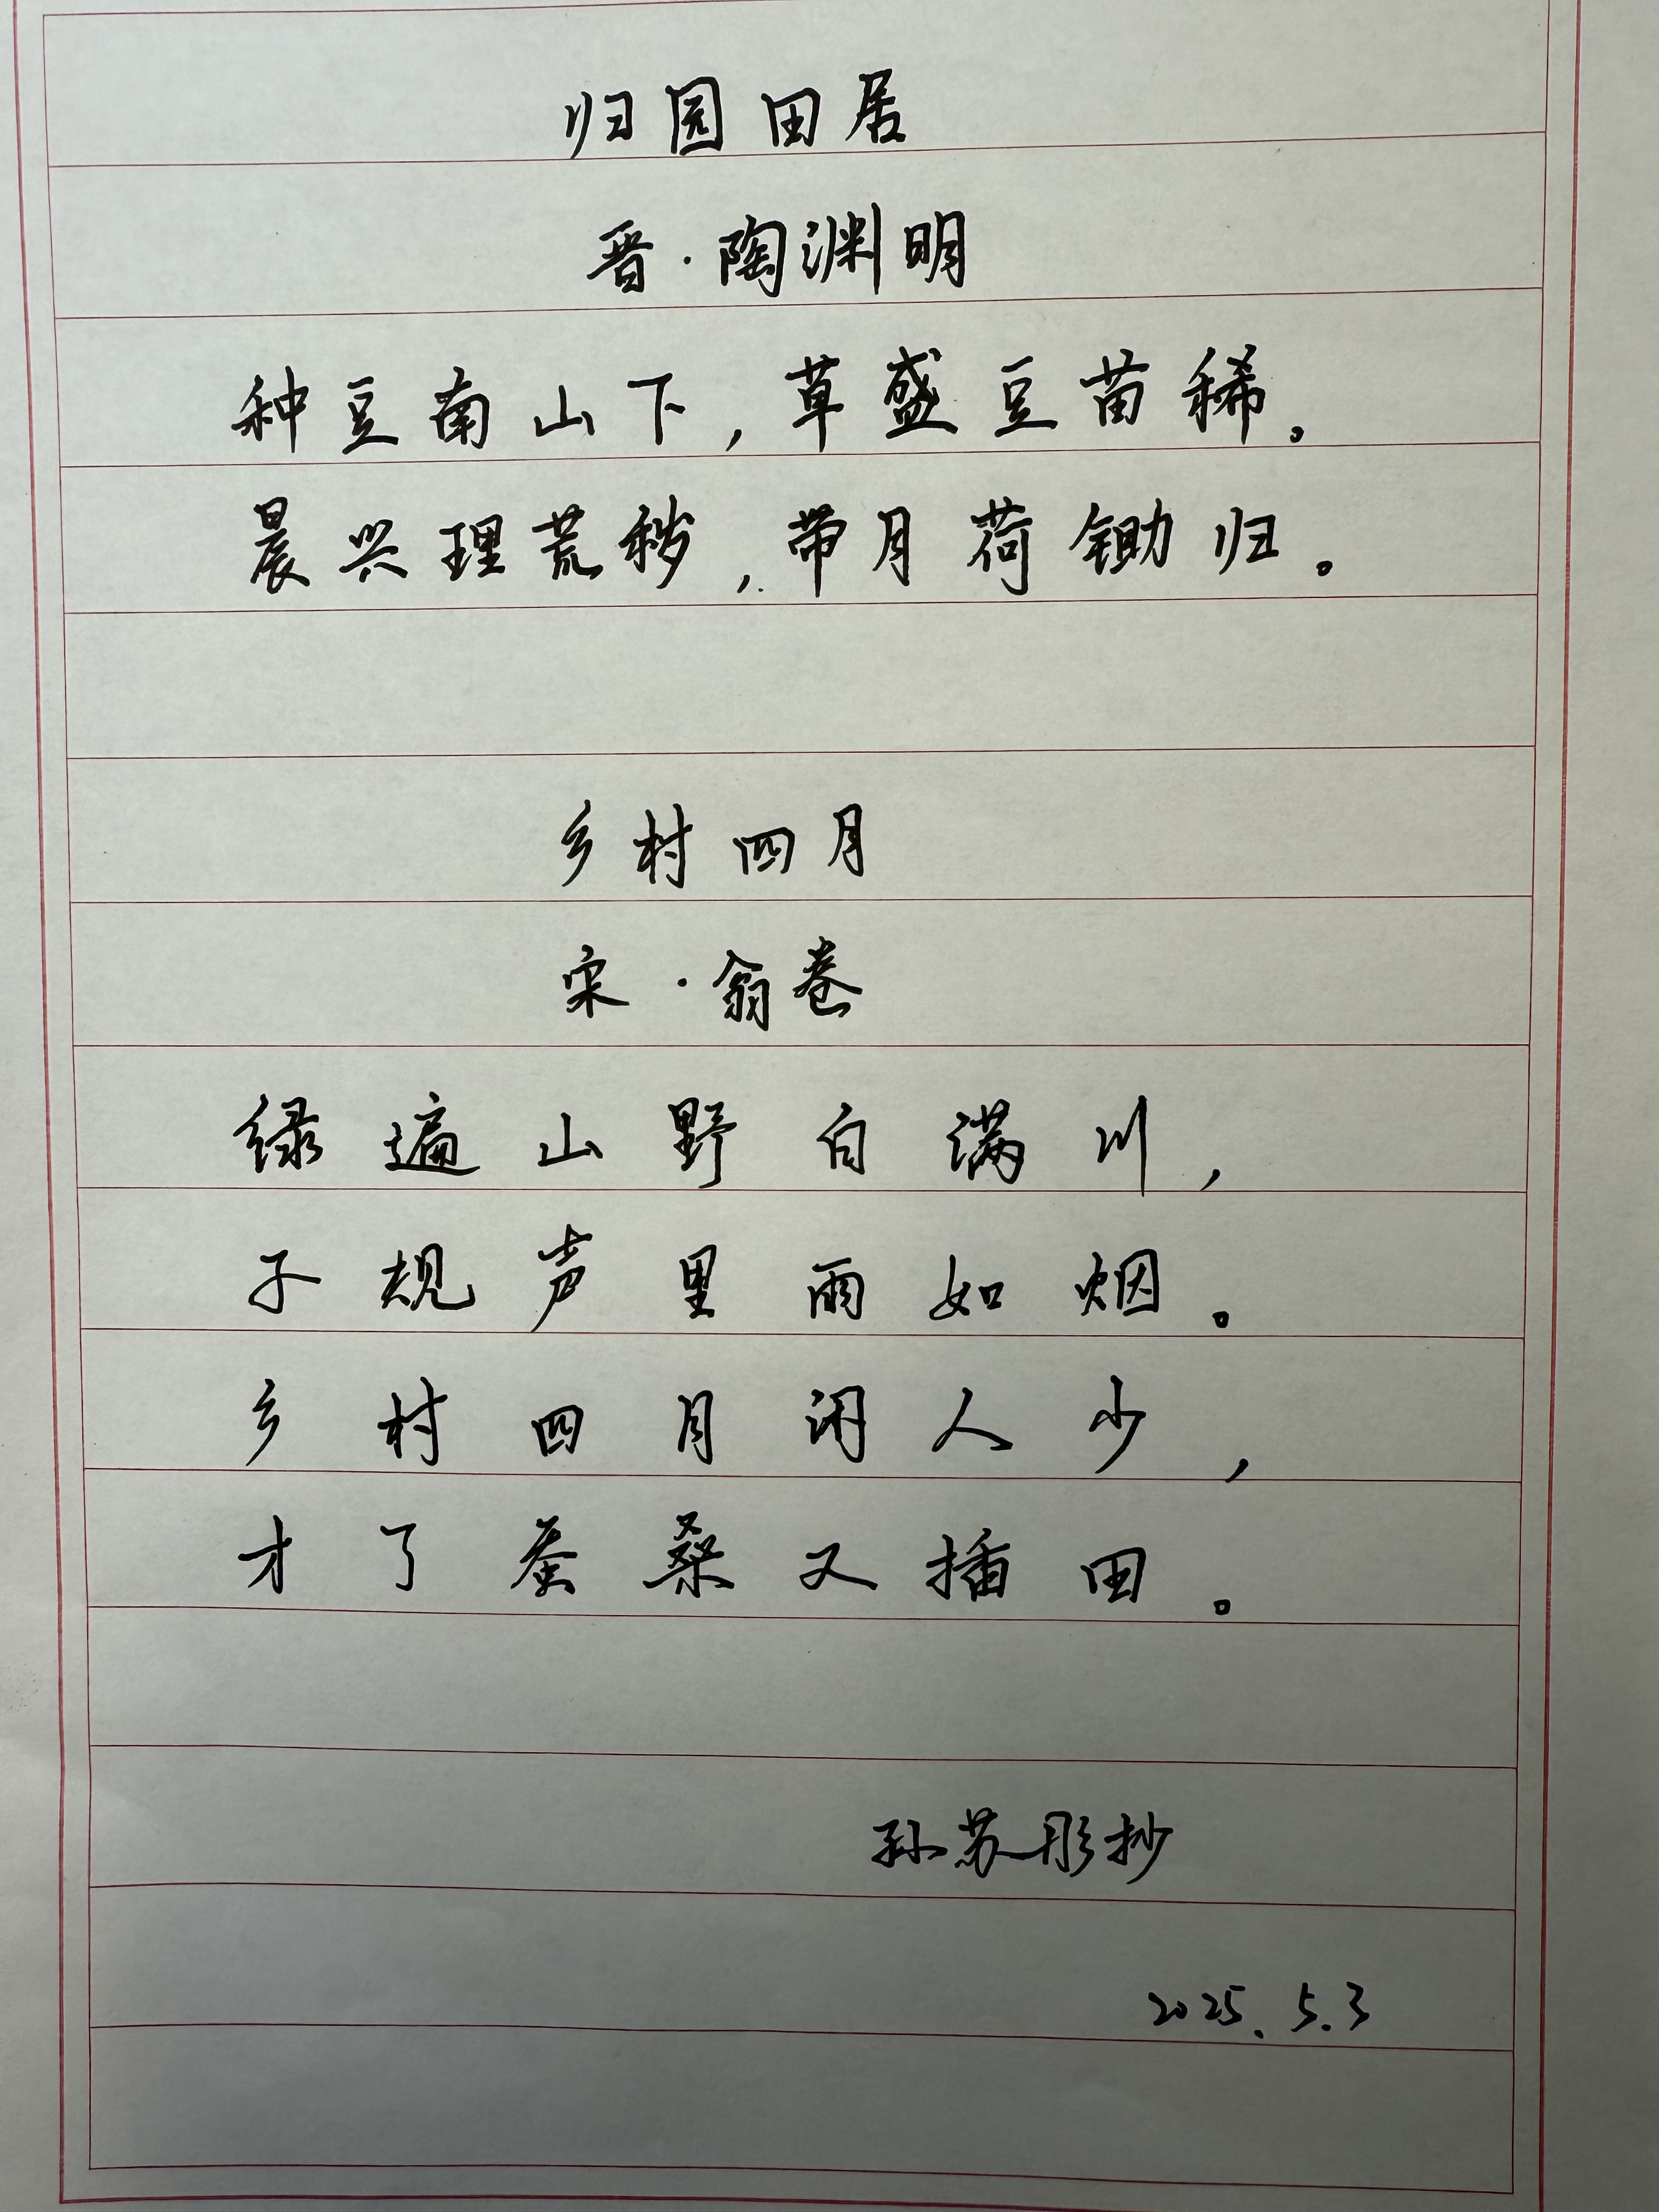 归园田居
晋·陶渊明
种豆南山下,草盛豆苗稀。
晨兴理荒秽,带月荷锄归。
乡村四月
宋·翁卷
绿遍山野白满川,
子规声里雨如烟。
乡村四月闲人少,
才了蚕桑又插田。
孙苏彤抄
2025.5.3